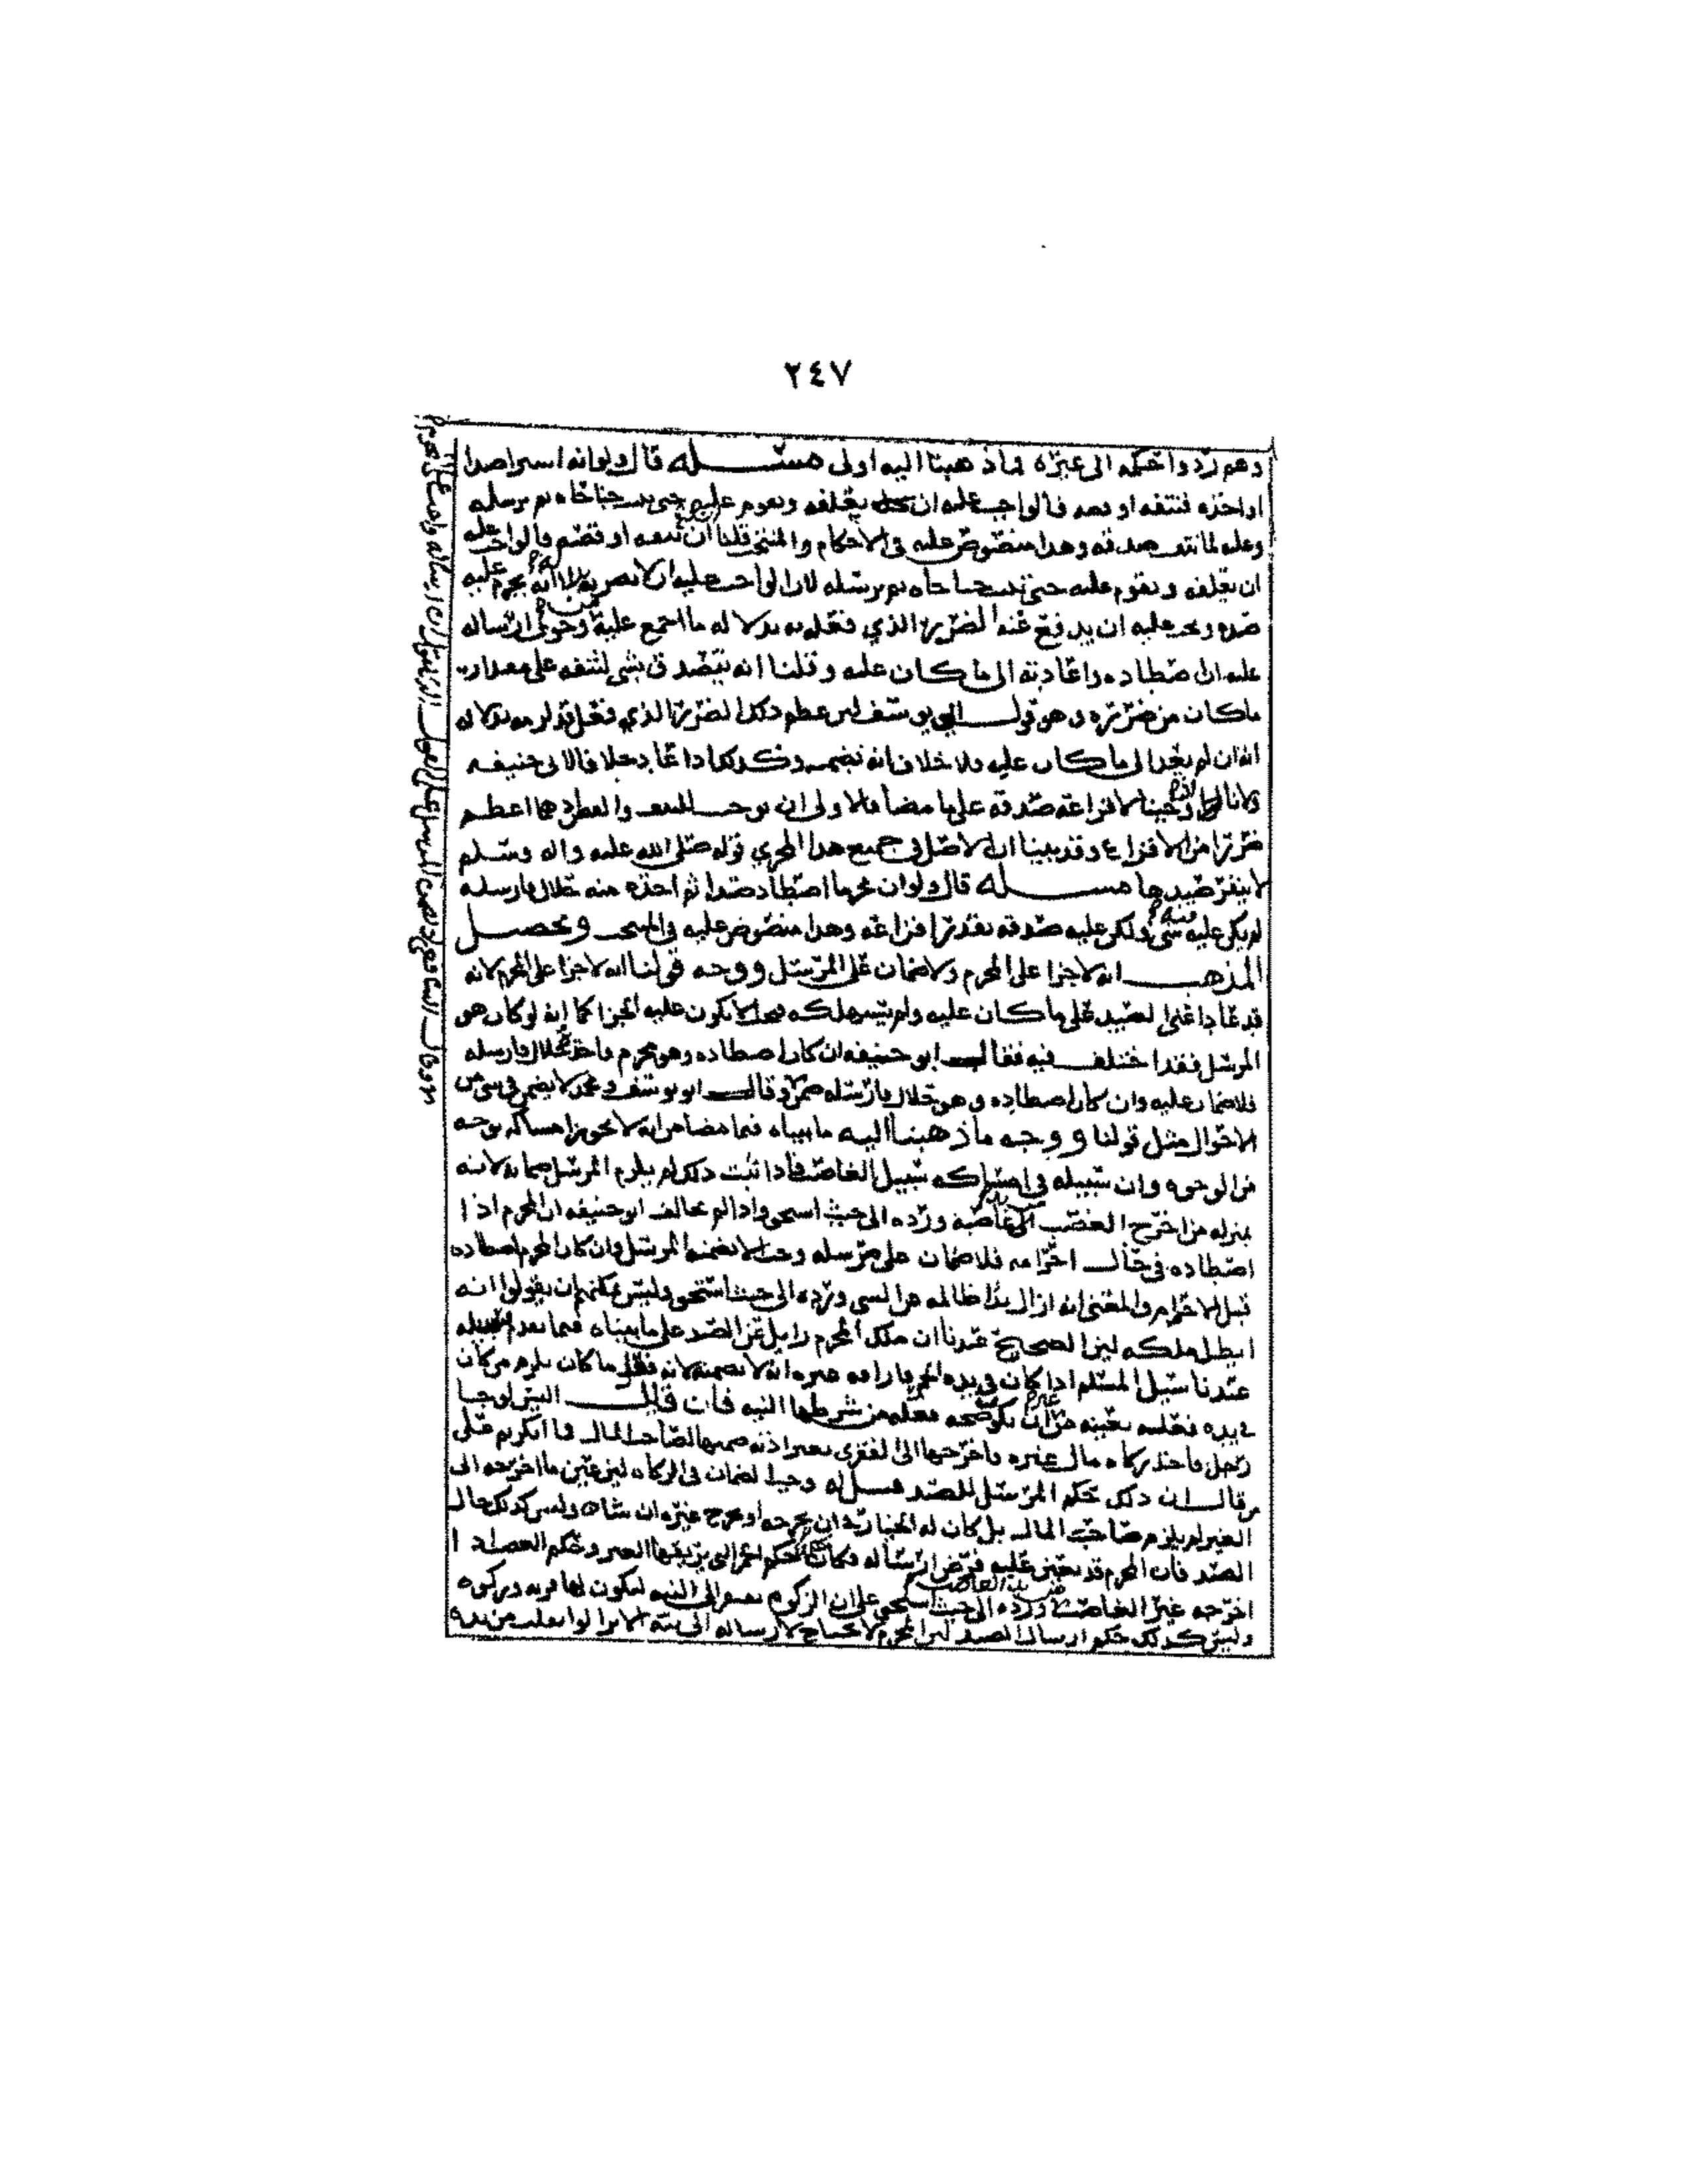 ٢٤٧
وهم ردوا حكمه الى غيره فماذهبنا اليه اولى مسئله قال ولو انه اسر اصدا
او اخذه فنتفه او قصه فالواجب عليه ان يعلفه ويقوم عليه حتى ينبت جناحاه ثم يرسله
وعليه لما نتف صدقه وهذا منصوص عليه في الاحكام والمنتخب قلنا ان نتفه او قصه فالواجب عليه
ان يعلفه ويقوم عليه حتى ينبت جناحاه ثم يرسله لان الواجب عليه ان لا يضر به لانه محرم عليه
صيده ويجب عليه ان يدفع عنه الضرر الذي فعله به بدلاله ما اجمع عليه وجوب ارساله
عليه ان اصطاده واعادته الى ما كان عليه وقلنا انه يتصدق بشي لنتفه على مقدار
ما كان من ضرره وهو قول ابي يوسف لان عظم ذلك الضرر الذي فعل قد لزمه بدلاله
انه ان لم يعد الى ما كان عليه فلا خلاف انه يضمنه وكذلك اذا عاد خلافا لابي حنيفه
ولانا اوجبنا لافزاعه صدقه على ما مضا فالاولى ان يوجب للنتف والقطع هما اعظم
ضررا من الافزاع وقد بينا ان الاصل في جميع هذا المجرى قوله صلى الله عليه واله وسلم
لا ينفر صيدها مسئله قال ولو ان محرما اصطاد صيدا ثم اخذه منه حلال فارسله
لم يكن عليه شي ولكن عليه صدقه بقدر افزاعه وهذا منصوص عليه في المنتخب وتحصيل
المذهب انه لا جزا على المحرم ولا ضمان على المرسل ووجه قولنا انه لا جزا على المحرم لانه
قد عاد اعني الصيد على ما كان عليه ولم يستهلكه فيجب الا يكون عليه الجزا كما انه لو كان هو
المرسل فقد اختلف فيه فقال ابو حنيفه ان كان اصطاده وهو محرم فاخذه حلال فارسله
فلا ضمان عليه وان كان اصطاده وهو حلال فارسله ضمن وقال ابو يوسف ومحمد لا يضمن في شي من
الاحوال مثل قولنا ووجه ما ذهبنا اليه ما بيناه فيما مضا من انه لا يجوز امساكه بوجه
من الوجوه وان سبيله في امساكه سبيل الغاصب فاذا ثبت ذلك لم يلزم المرسل ضمانه لانه
بمنزله من اخرج الغصب من يد غاصبه ورده الى حيث استحق واذا لم يخالف ابو حنيفه ان المحرم اذا
اصطاده في حال احرامه فلا ضمان على مرسله وجب الا يضمنه المرسل وان كان المحرم اصطاده
قبل الاحرام والمعنى انه ازال يدا ظالمه عن الشي ورده الى حيث استحق وليس يمكنهم ان يقولوا انه
ابطل ملكه لان الصحيح عندنا ان ملك المحرم زايل عن الصيد على ما بيناه فيما تقدم
عندنا سبيل المسلم اذا كان في يده الخمر فاراقه غيره انه لا يضمنه لانه فعل ما كان يلزم من كان
في يده فعله بعينه من غير ان يكون صحه فعله من شرطها النيه فان قال اليس لو جا
رجل فاخذ زكاه مال غيره فاخرجها الى الفقرى بغير اذنه ضمنها لصاحب المال فما انكرتم على
من قال ان ذلك حكم المرسل للصيد قيل له وجب الضمان في الزكاه لان عين ما اخرجه الى
الفقير لم يلزم صاحب المال بل كان له الخيار بين ان يخرجه او يخرج غيره ان شاء وليس كذلك حال
الصيد فان المحرم قد تعين عليه فرض ارساله فكان حكم الخمر التي يريقها الغير وحكم الغصب اذا
اخرجه غير الغاصب من يد الغاصب ورده الى حيث استحق على ان الزكوه تفتقر الى النيه لتكون لها قربه وزكوه
وليس كذلك حكم ارسال الصيد لان المحرم لا يحتاج لارساله الى نيه الا ترا لو انفلت من يده